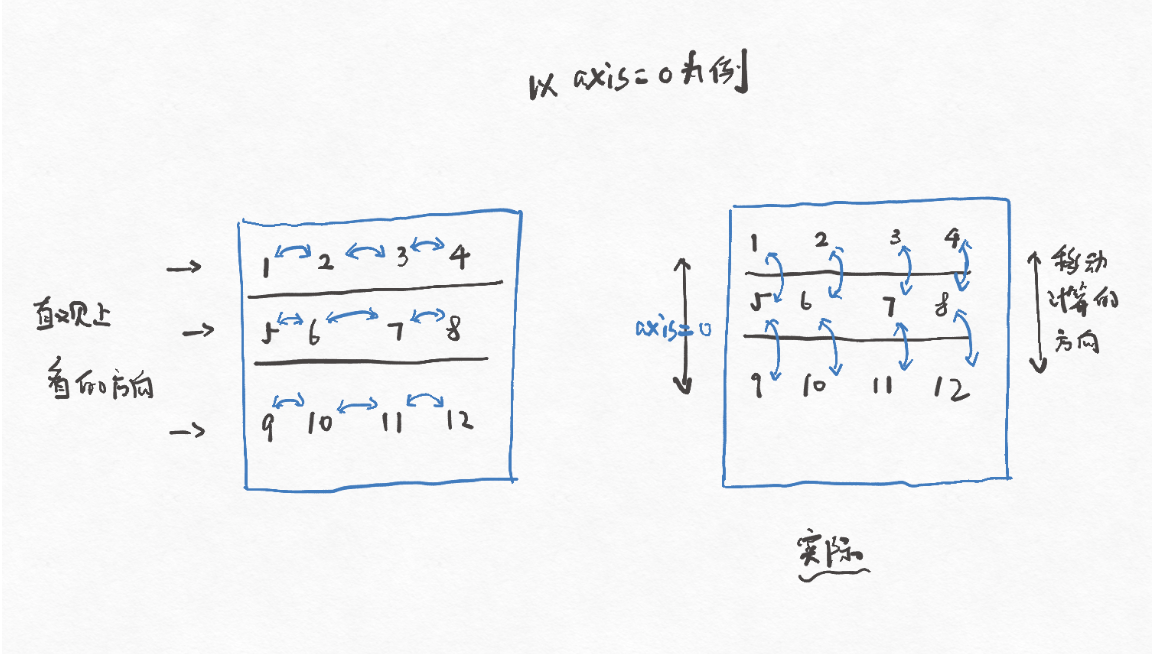 以 axis=0 为例
直观上
看的方向
1 2 3 4
5 6 7 8
9 10 11 12
axis=0
1 2 3 4
5 6 7 8
9 10 11 12
移动
计算的
方向
实际